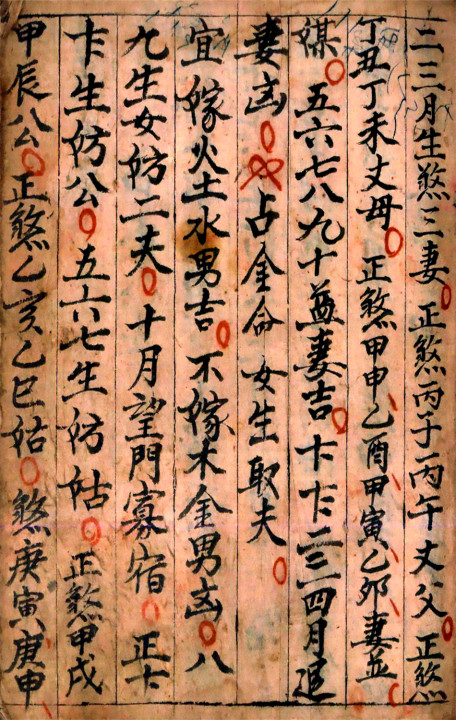 二三月生煞三妻 正煞丙子丙午丈父 正煞
丁丑丁未丈母 正煞甲申乙酉甲寅乙卯妻並
媒 五六七八九十益妻吉 二三四月進
妻凶 占金命女生取夫
宜嫁火土水男吉 不嫁木金男凶 八
九生女妨二夫 十月望門寡宿 正
生妨公 五六七生妨姑 正煞甲戌
甲辰公 正煞乙亥乙巳姑 煞庚寅庚申